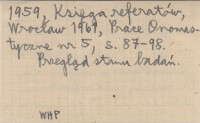 1959, Księga referatów,
Wrocław 1961, Prace Onomas-
tyczne nr 5, s. 87-98.
Przegląd stanu badań.
WHP